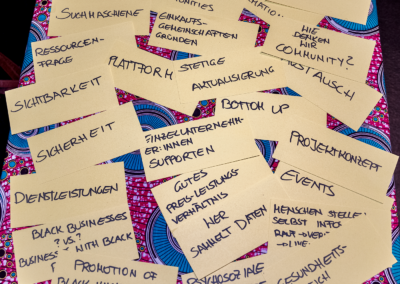 SUCHMASCHIENE
EINKAUFS-
GEMEINSCHAFTEN
GRÜNDEN
WIE
DENKEN
WIR
COMMUNITY?
RESSOURCEN-
FRAGE
PLATTFORM
STETIGE
AKTUALISIERUNG
SICHTBARKEIT
BOTTOM UP
SICHERHEIT
EINZELUNTERNEHM-
ER:INNEN
SUPPORTEN
PROJEKTKONZEPT
DIENSTLEISTUNGEN
GUTES
PREIS-LEISTUNGS
VERHÄLTNIS
EVENTS
BLACK BUSINESSES
? VS ?
BUSINESS WITH BLACK
WER
SAMMELT DATEN
MENSCHEN STELLEN
SELBST INFOS
PROMOTION OF
PSYCHOSOZIALE
GESUNDHEITS-